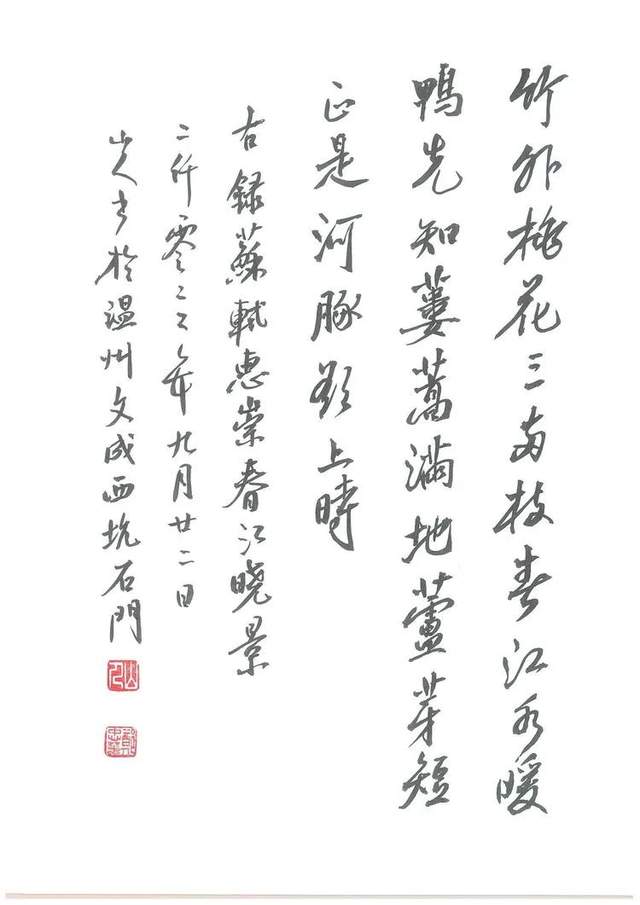 竹外桃花三兩枝春江水暖
鴨先知蔞蒿滿地蘆芽短
正是河豚欲上時
右録蘇軾惠崇春江曉景
二仟零二二年九月廿二日
山人书於温州文成西坑石門
山人